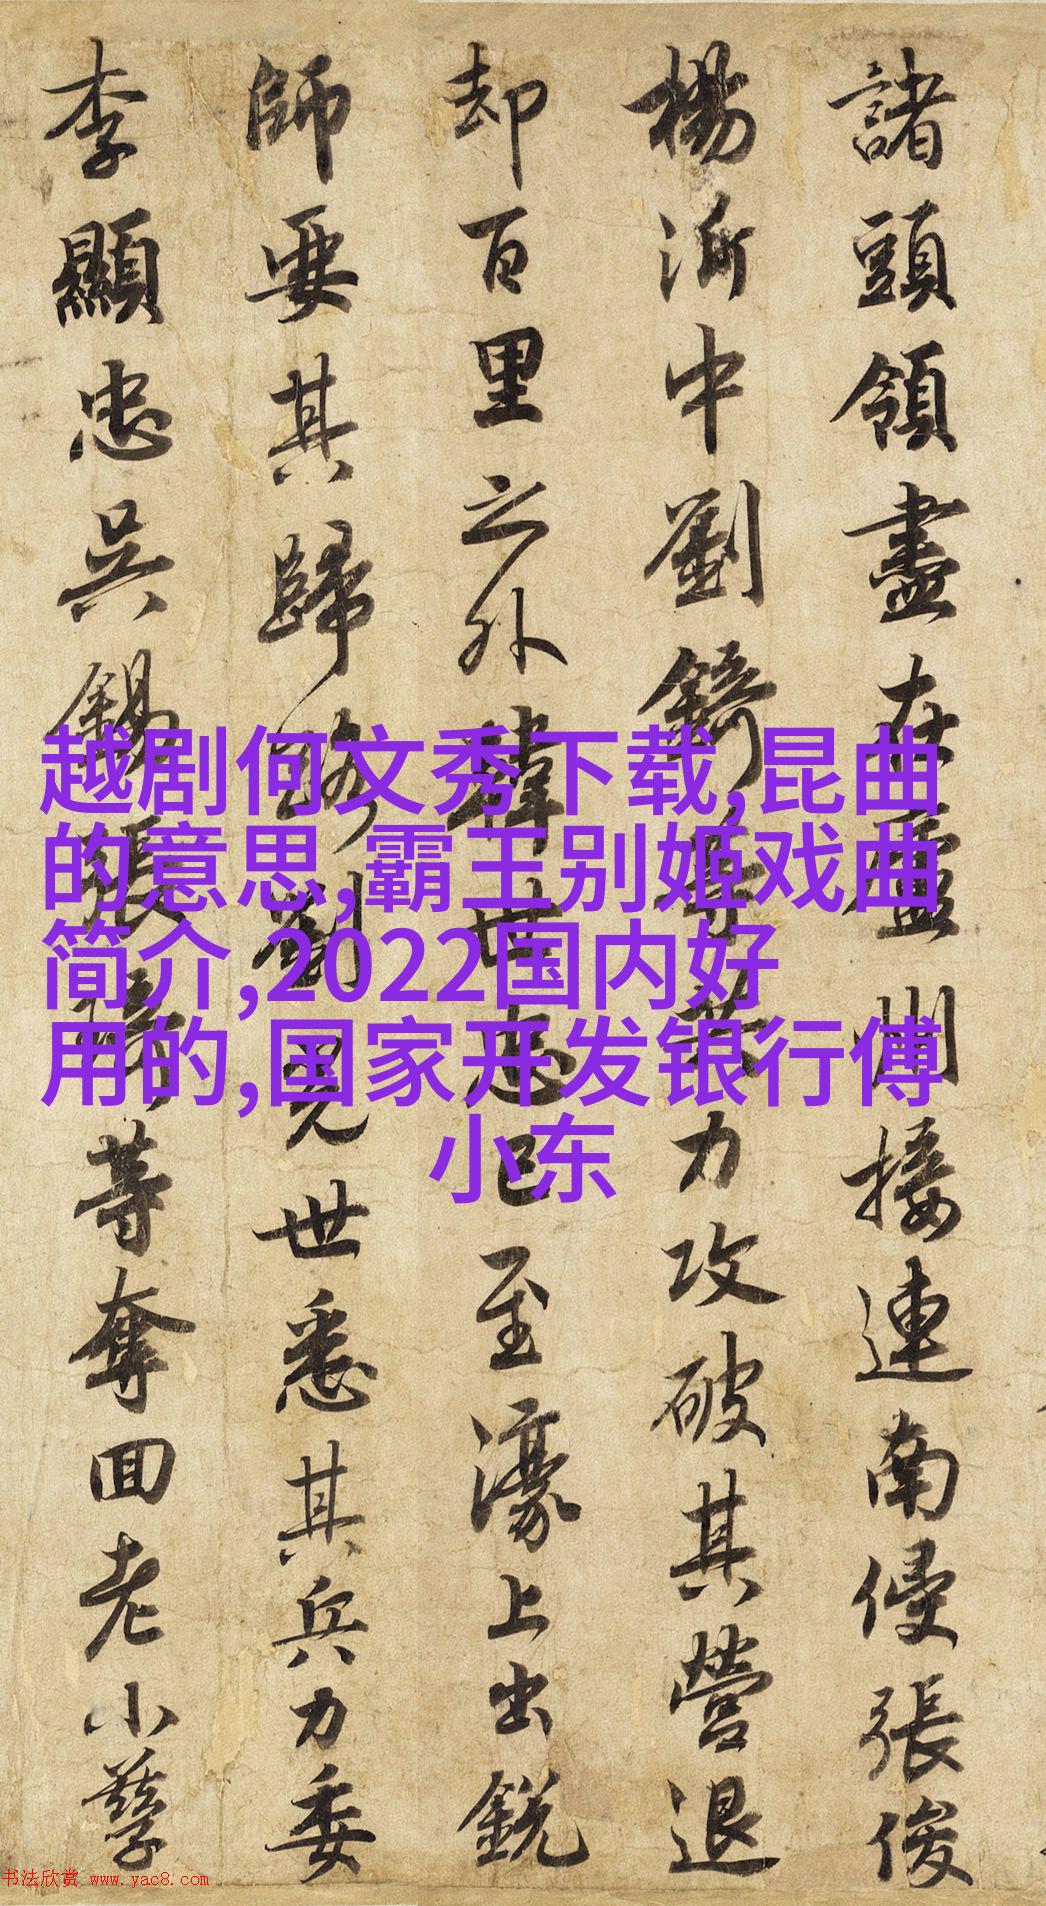 諸頭領盡在盧州接連南侵張俊
楊沂中劉錡等共力攻破其營退
却百里之外韓世忠已至濠上出銳
師要其歸路劉光世悉其兵力委
李顯忠吳錫張琦等奪回老小孳
越剧何文秀下载,昆曲
的意思,霸王别姬戏曲
简介,2022国内好
用的,国家开发银行傅
小东
书法欣赏 www.yac8.com